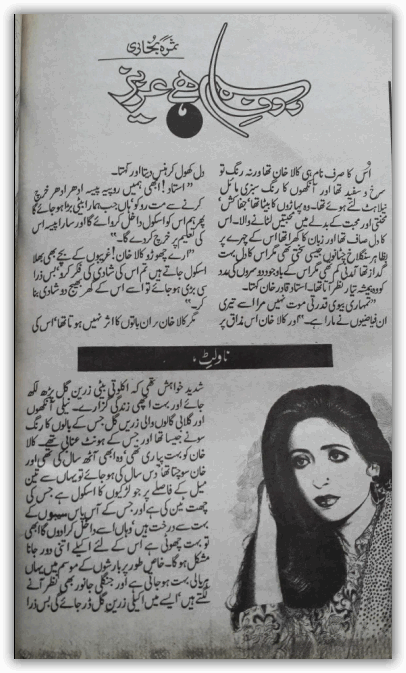 ثمرہ بخاری
بے وفا ہے عزیز
اُس کا صرف نام ہی کالا خان تھا ورنہ رنگ تو
سرخ و سفید تھا اور آنکھوں کا رنگ سبزی مائل
نیلاہٹ لئے ہوئے تھا۔ وہ پہاڑوں کا بیٹا تھا جفاکش
محنتی اور محبت کے بدلے میں محبتیں لٹانے والا۔ اس
کا دل صاف تھا اور زبان کا کھرا تھا اس کے چہرے پر
بظاہر سنگلاخ چٹانوں جیسی سختی تھی مگر اس کا دل بہت
گداز تھا آمدنی کم تھی مگر اس کے باوجود دوسروں کی مدد
کو وہ ہمیشہ تیار نظر آتا تھا۔ استاد قادر خان کہتا۔
"تمہاری بیوی قدرتی موت نہیں مرا اسے تیری
ان فیاضیوں نے مارا ہے۔" اور کالا خان اس مذاق پر
دل کھول کر ہنس دیتا اور کہتا۔
"استاد! ابھی ہمیں روپیہ پیسہ ادھر ادھر خرچ
کرنے سے مت روکو ہاں جب ہمارا بیٹی بڑا ہو جائے گا
پھر ہم اس کو اسکول داخل کروائے گا اور سارا پیسہ اس
کی تعلیم پر خرچ کرے گا۔"
"ارے چھوڑو کالا خان! غریبوں کے بچے بھی بھلا
اسکول جاتے ہیں تم اس کی شادی کی فکر کرو بس ذرا
سی بڑی ہو جائے تو اسے اس کے گھر بھیج دو شادی بنا
کر۔"
مگر کالا خان پر ان باتوں کا اثر نہیں ہوتا تھا اس کی
ناولٹ
شدید خواہش تھی کہ اکلوتی بیٹی زرین گل پڑھ لکھ
جائے اور بہت اچھی زندگی گزارے۔ نیلی آنکھوں
اور گلابی گالوں والی زریں گل جس کے بالوں کا رنگ
سونے جیسا تھا اور جس کے ہونٹ عنابی تھے۔ کالا
خان کو بہت پیاری تھی وہ ابھی آٹھ سال کی تھی اور
خان سوچتا تھا دس سال کی ہو جائے تو یہاں سے تین
میل کے فاصلے پر جو لڑکیوں کا اسکول ہے جس کی
چھت ٹین کی ہے اور جس کے آس پاس سیبوں کے
بہت سے درخت ہیں وہاں اسے داخل کرا دوں گا ابھی
تو بہت چھوٹی ہے اس کے لئے اکیلے اتنی دور جانا
مشکل ہو گا۔ خاص طور پر بارشوں کے موسم میں یہاں
ہریالی بہت ہو جاتی ہے اور جنگلی جانور بھی نظر آنے
لگتے ہیں ایسے میں اکیلی زرین گل ڈر جائے گی بس ذرا